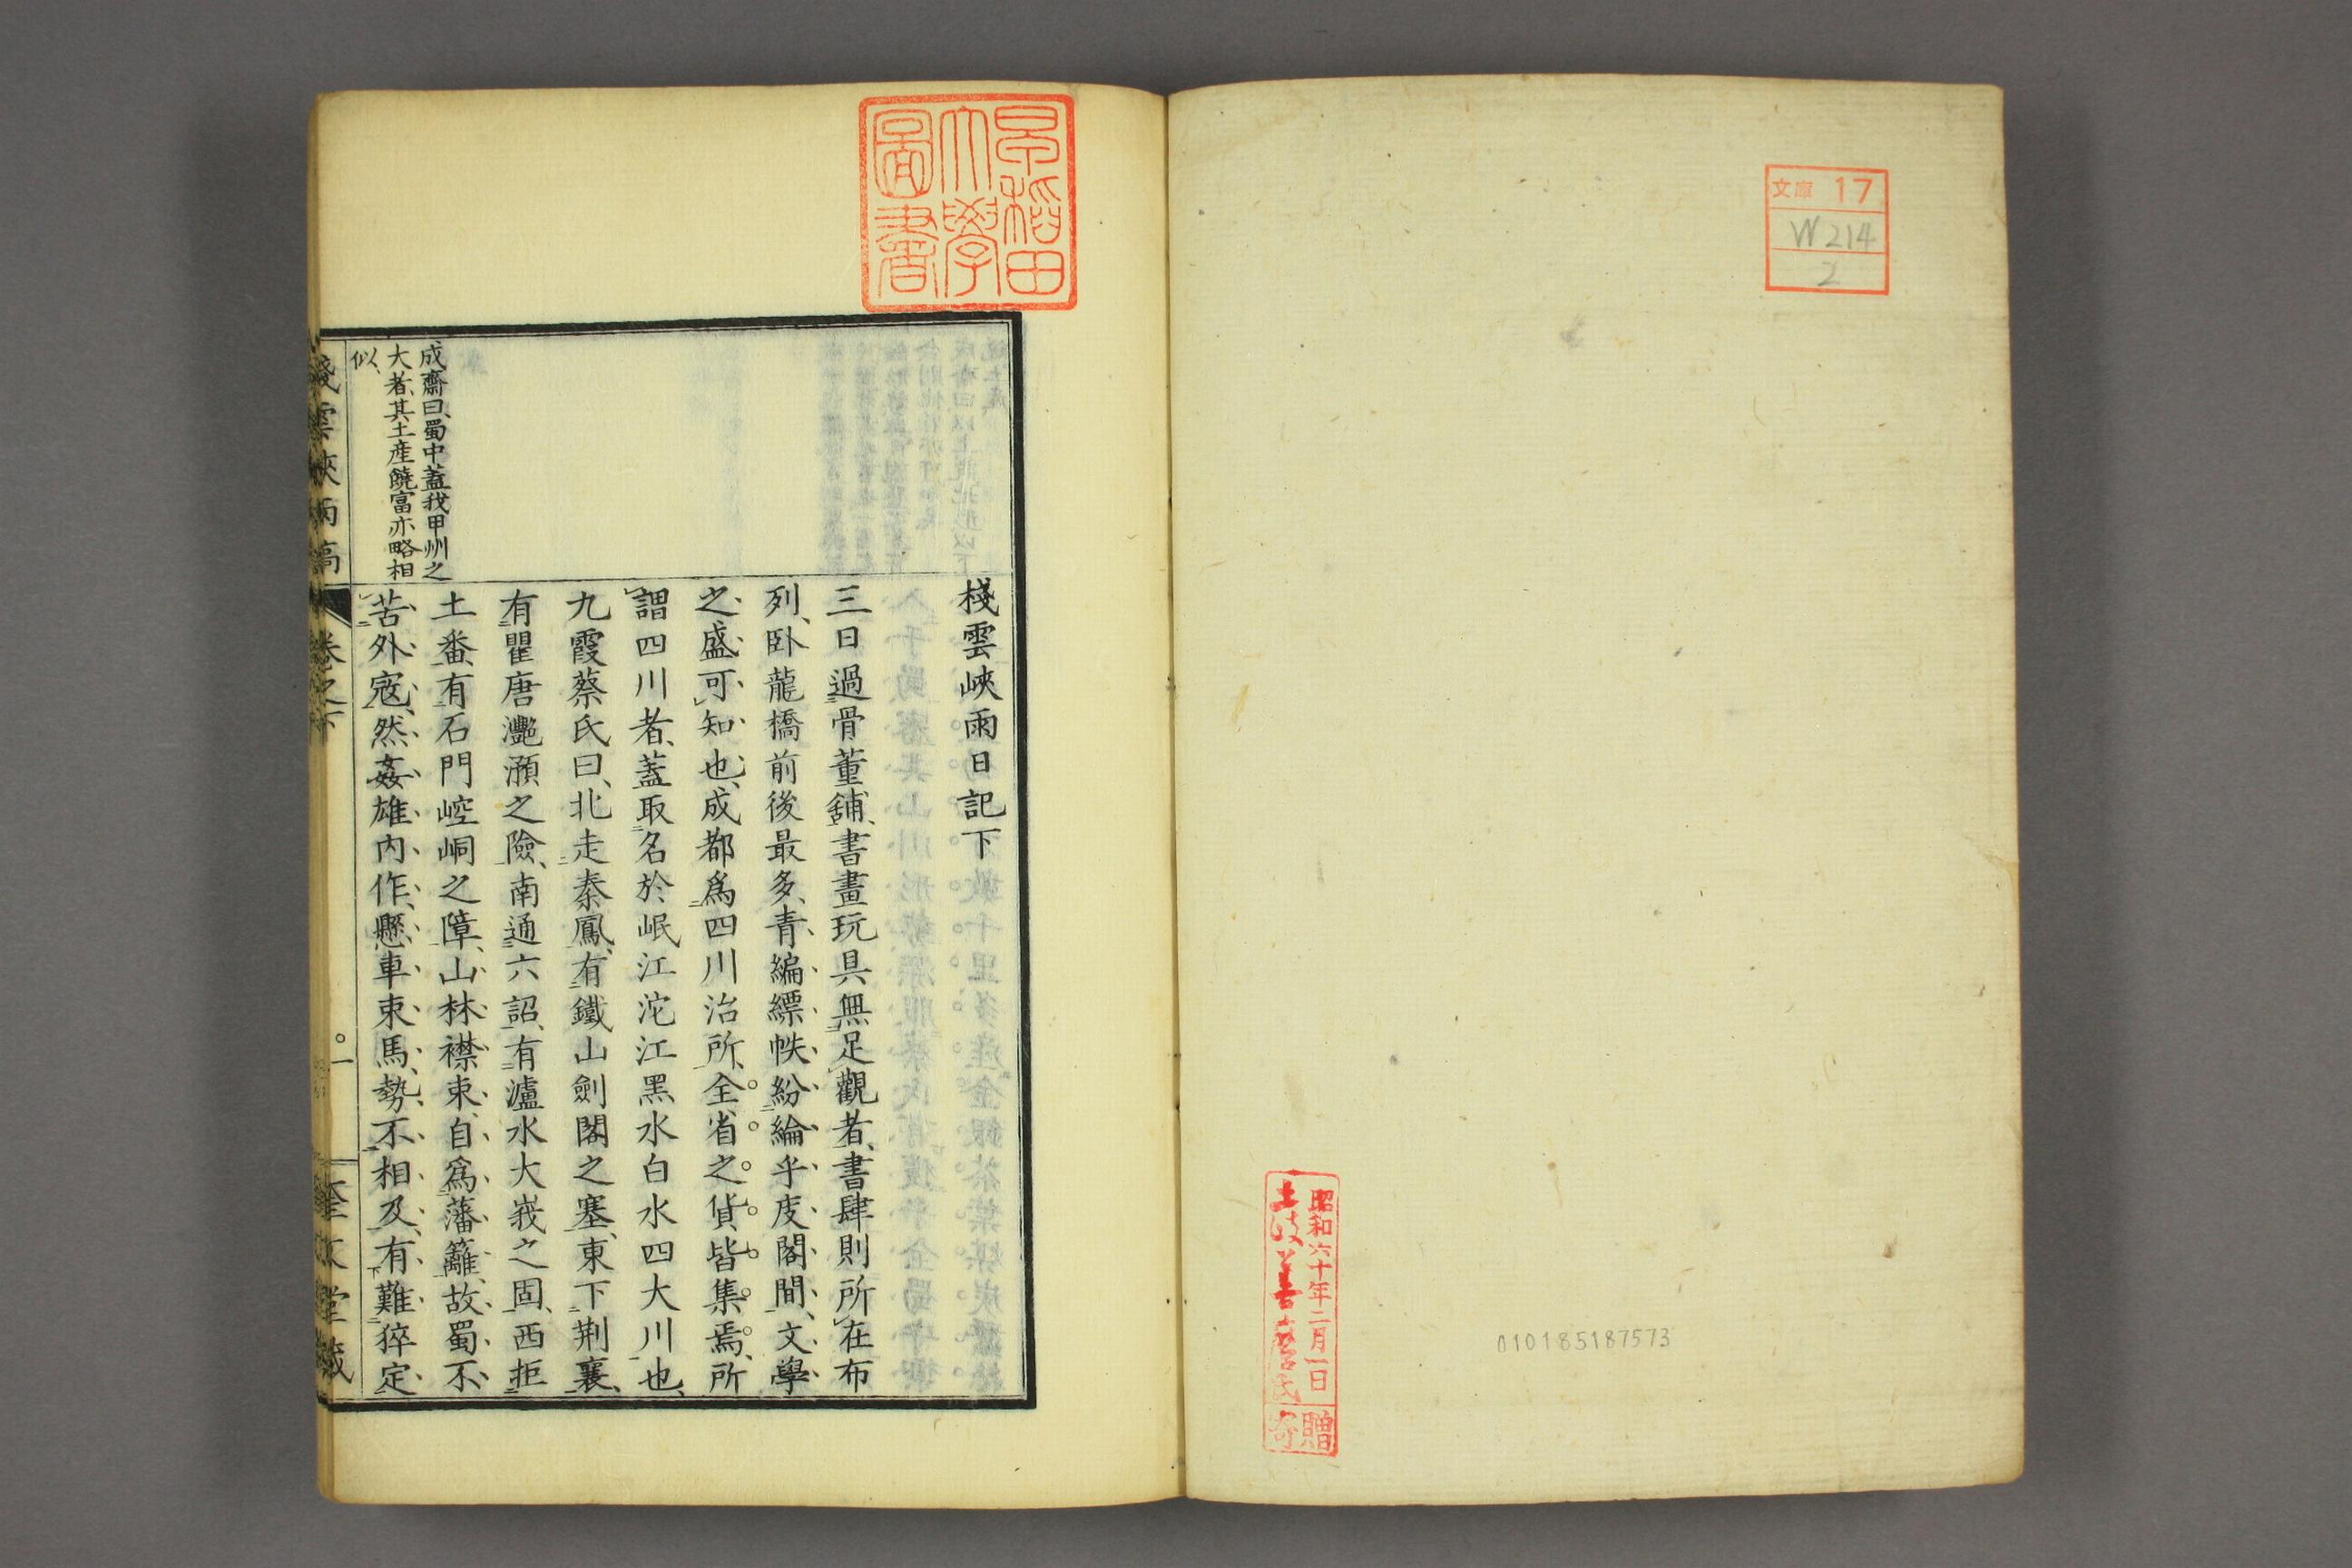 文庫 17
W214
2
昭和六十年二月一日
土岐善麿氏
寄贈
010185187573
早稲田
大學
圖書
棧雲峽雨日記下
三日過骨董舖、書畫玩具無足觀者、書肆則所在布
列、卧龍橋前後最多、青編縹帙、紛綸乎庋閣間、文學
之盛可知也、成都爲四川治所、全省之貨皆集焉、所
謂四川者、蓋取名於岷江沱江黑水白水四大川也、
九霞蔡氏曰、北走秦鳳、有鐵山劍閣之塞、東下荆襄、
有瞿唐灔澦之險、南通六詔、有瀘水大峩之固、西拒
土番、有石門崆峒之障、山林襟束、自爲藩籬、故蜀不
苦外寇、然姦雄内作、懸車束馬、勢不相及、有難猝定
成齋曰、蜀中蓋我甲州之
大者、其土産饒富亦略相
似、
棧雲峽雨稿
卷之下
一
奎文堂藏